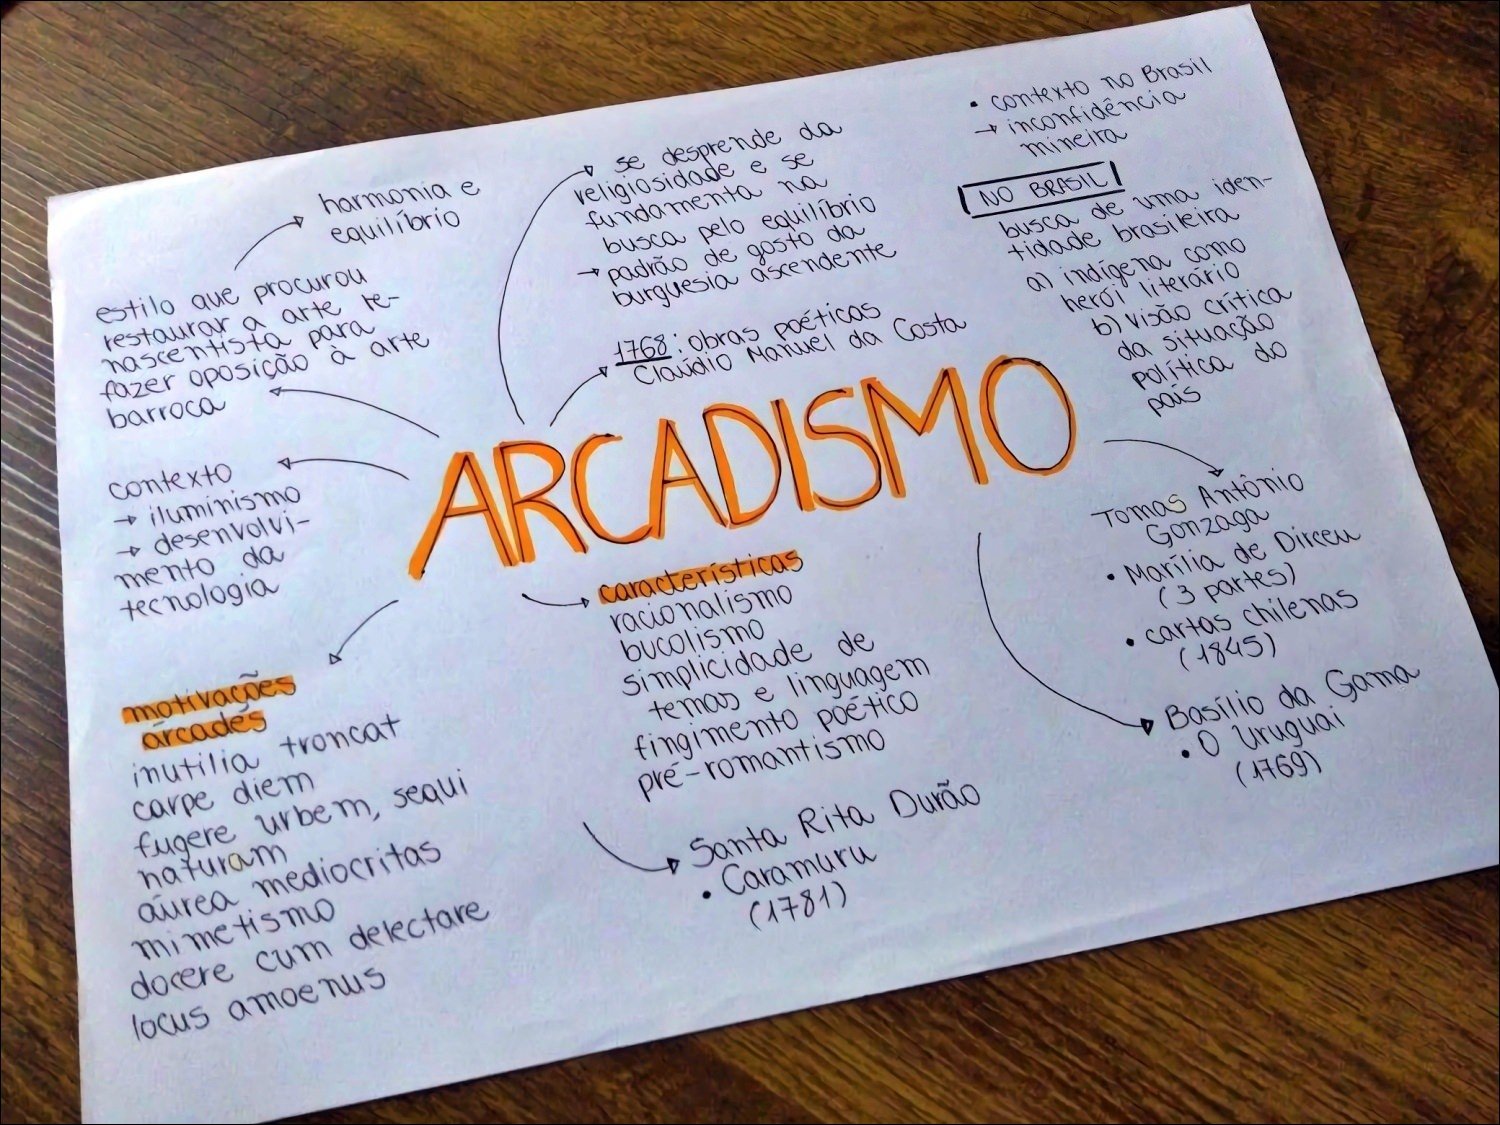 harmonia e
equilíbrio
estilo que procurou
restaurar a arte re-
nascentista para
fazer oposição à arte
barroca
se desprende da
religiosidade e se
fundamenta na
busca pelo equilíbrio
→ padrão de gosto da
burguesia ascendente
1768: obras poéticas
Claúdio Manuel da Costa
• contexto no Brasil
→ inconfidência
mineira
NO BRASIL
busca de uma iden-
tidade brasileira
a) indígena como
herói literário
b) visão crítica
da situação
política do
país
ARCADISMO
contexto
→ iluminismo
→ desenvolvi-
mento da
tecnologia
motivações
árcades
inutilia troncat
carpe diem
fugere urbem, sequi
naturam
áurea mediocritas
mimetismo
docere cum delectare
locus amoenus
características
racionalismo
bucolismo
simplicidade de
temas e linguagem
fingimento poético
pré-romantismo
Santa Rita Durão
• Caramuru
(1781)
Tomas Antônio
Gonzaga
• Marília de Dirceu
(3 partes)
• cartas chilenas
(1845)
Basílio da Gama
• O Uruguai
(1769)